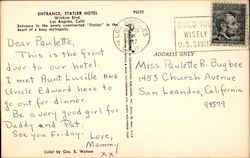 ENTRANCE, STATLER HOTEL
Wilshire Blvd.
Los Angeles, Calif.
Entrance to the newly constructed "Statler" in the
heart of a busy metropolis.
P6255
Dear Paulette,
This is the front
door to our hotel.
I met Aunt Lucille and
Uncle Edward here to
go out for dinner.
Be a very good girl for
Daddy and Pat.
See you Friday. Love,
Mommy
xx
Color by Geo. E. Watson
BUILD YOUR
WISELY
U.S. SAVINGS
ADDRESS ONLY
Miss Paulette R. Bugbee
1453 Church Avenue
San Leandro, California
94579